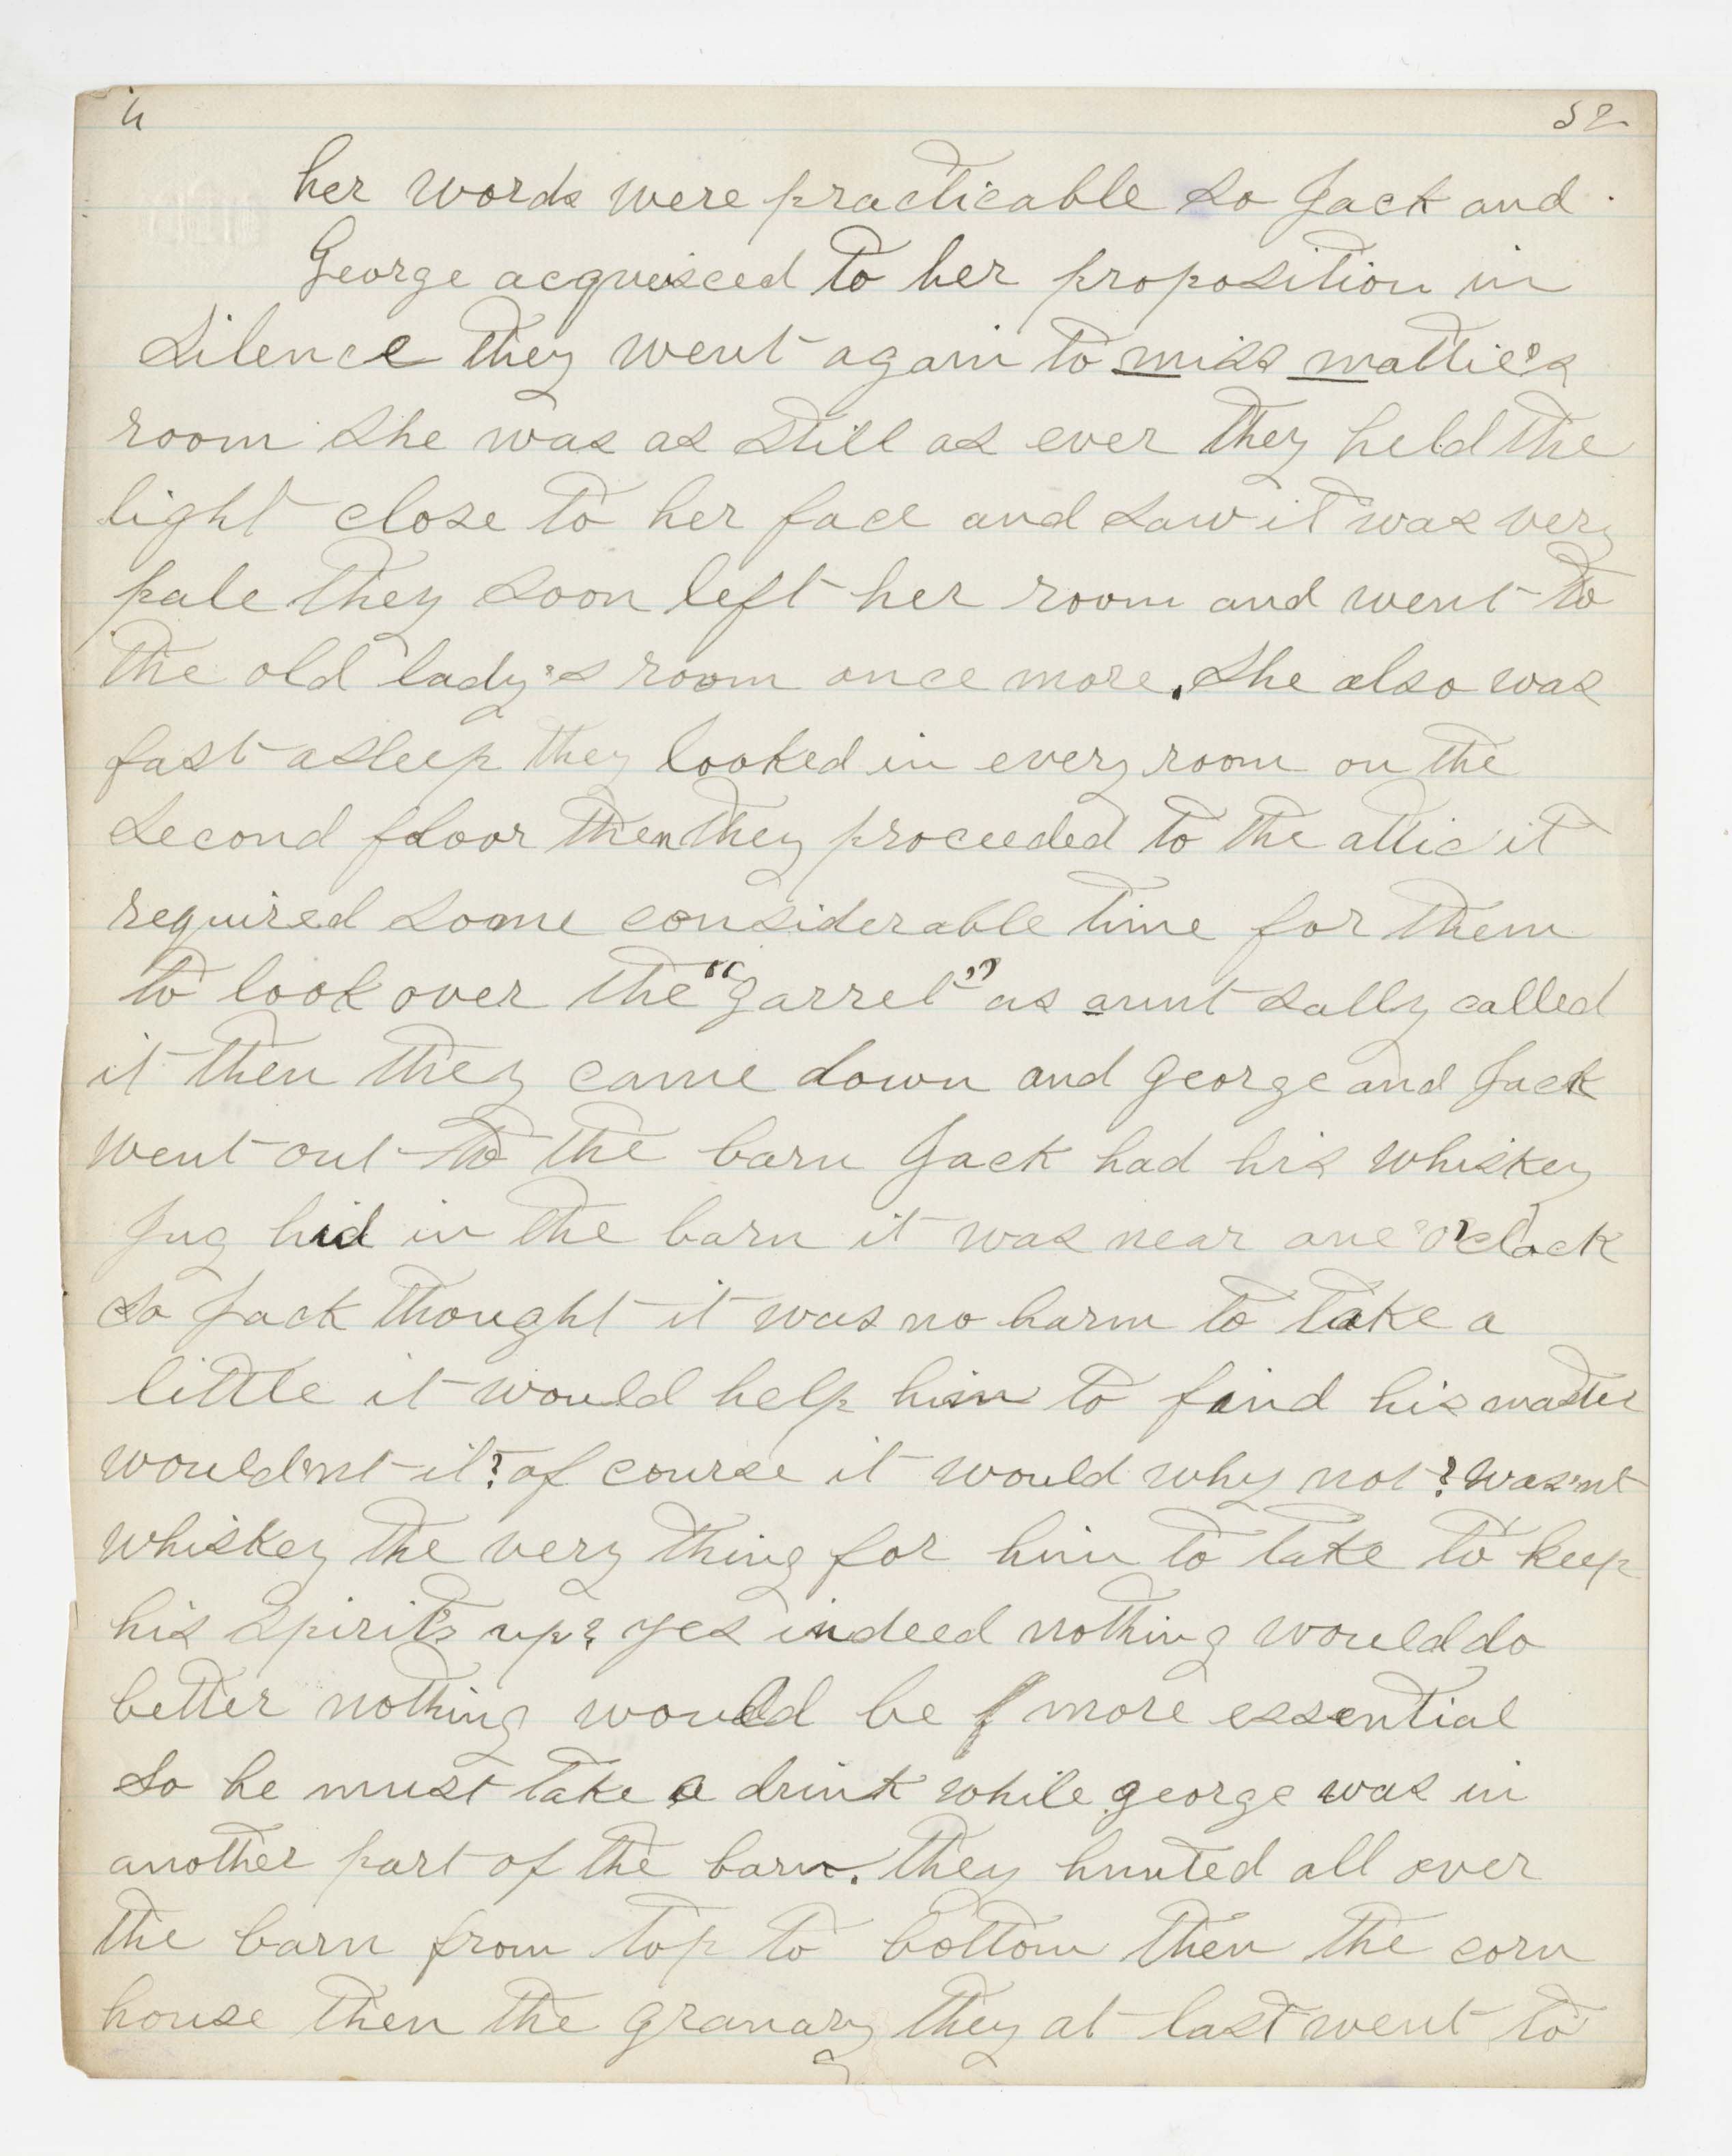 52
her words were practicable so Jack and
George acqueisced to her proposition in
silence they went again to miss mattie's
room she was as still as ever they held the
light close to her face and saw it was very
pale they soon left her room and went to
the old lady's room once more. she also was
fast asleep they looked in every room on the
second floor then they proceeded to the attic it
required some considerable time for them
to look over the "garret" as aunt sally called
it then they came down and george and Jack
went out to the barn Jack had his whiskey
Jug hid in the barn it was near one o'clock
so Jack thought it was no harm to take a
little it would help him to find his master
would'nt it? of course it would why not? was'nt
whiskey the very thing for him to take to keep
his spirits up? yes indeed nothing would do
better nothing would be more essential
so he must take a drink while george was in
another part of the barn. they hunted all over
the barn from top to bottom then the corn
house then the granary they at last went to